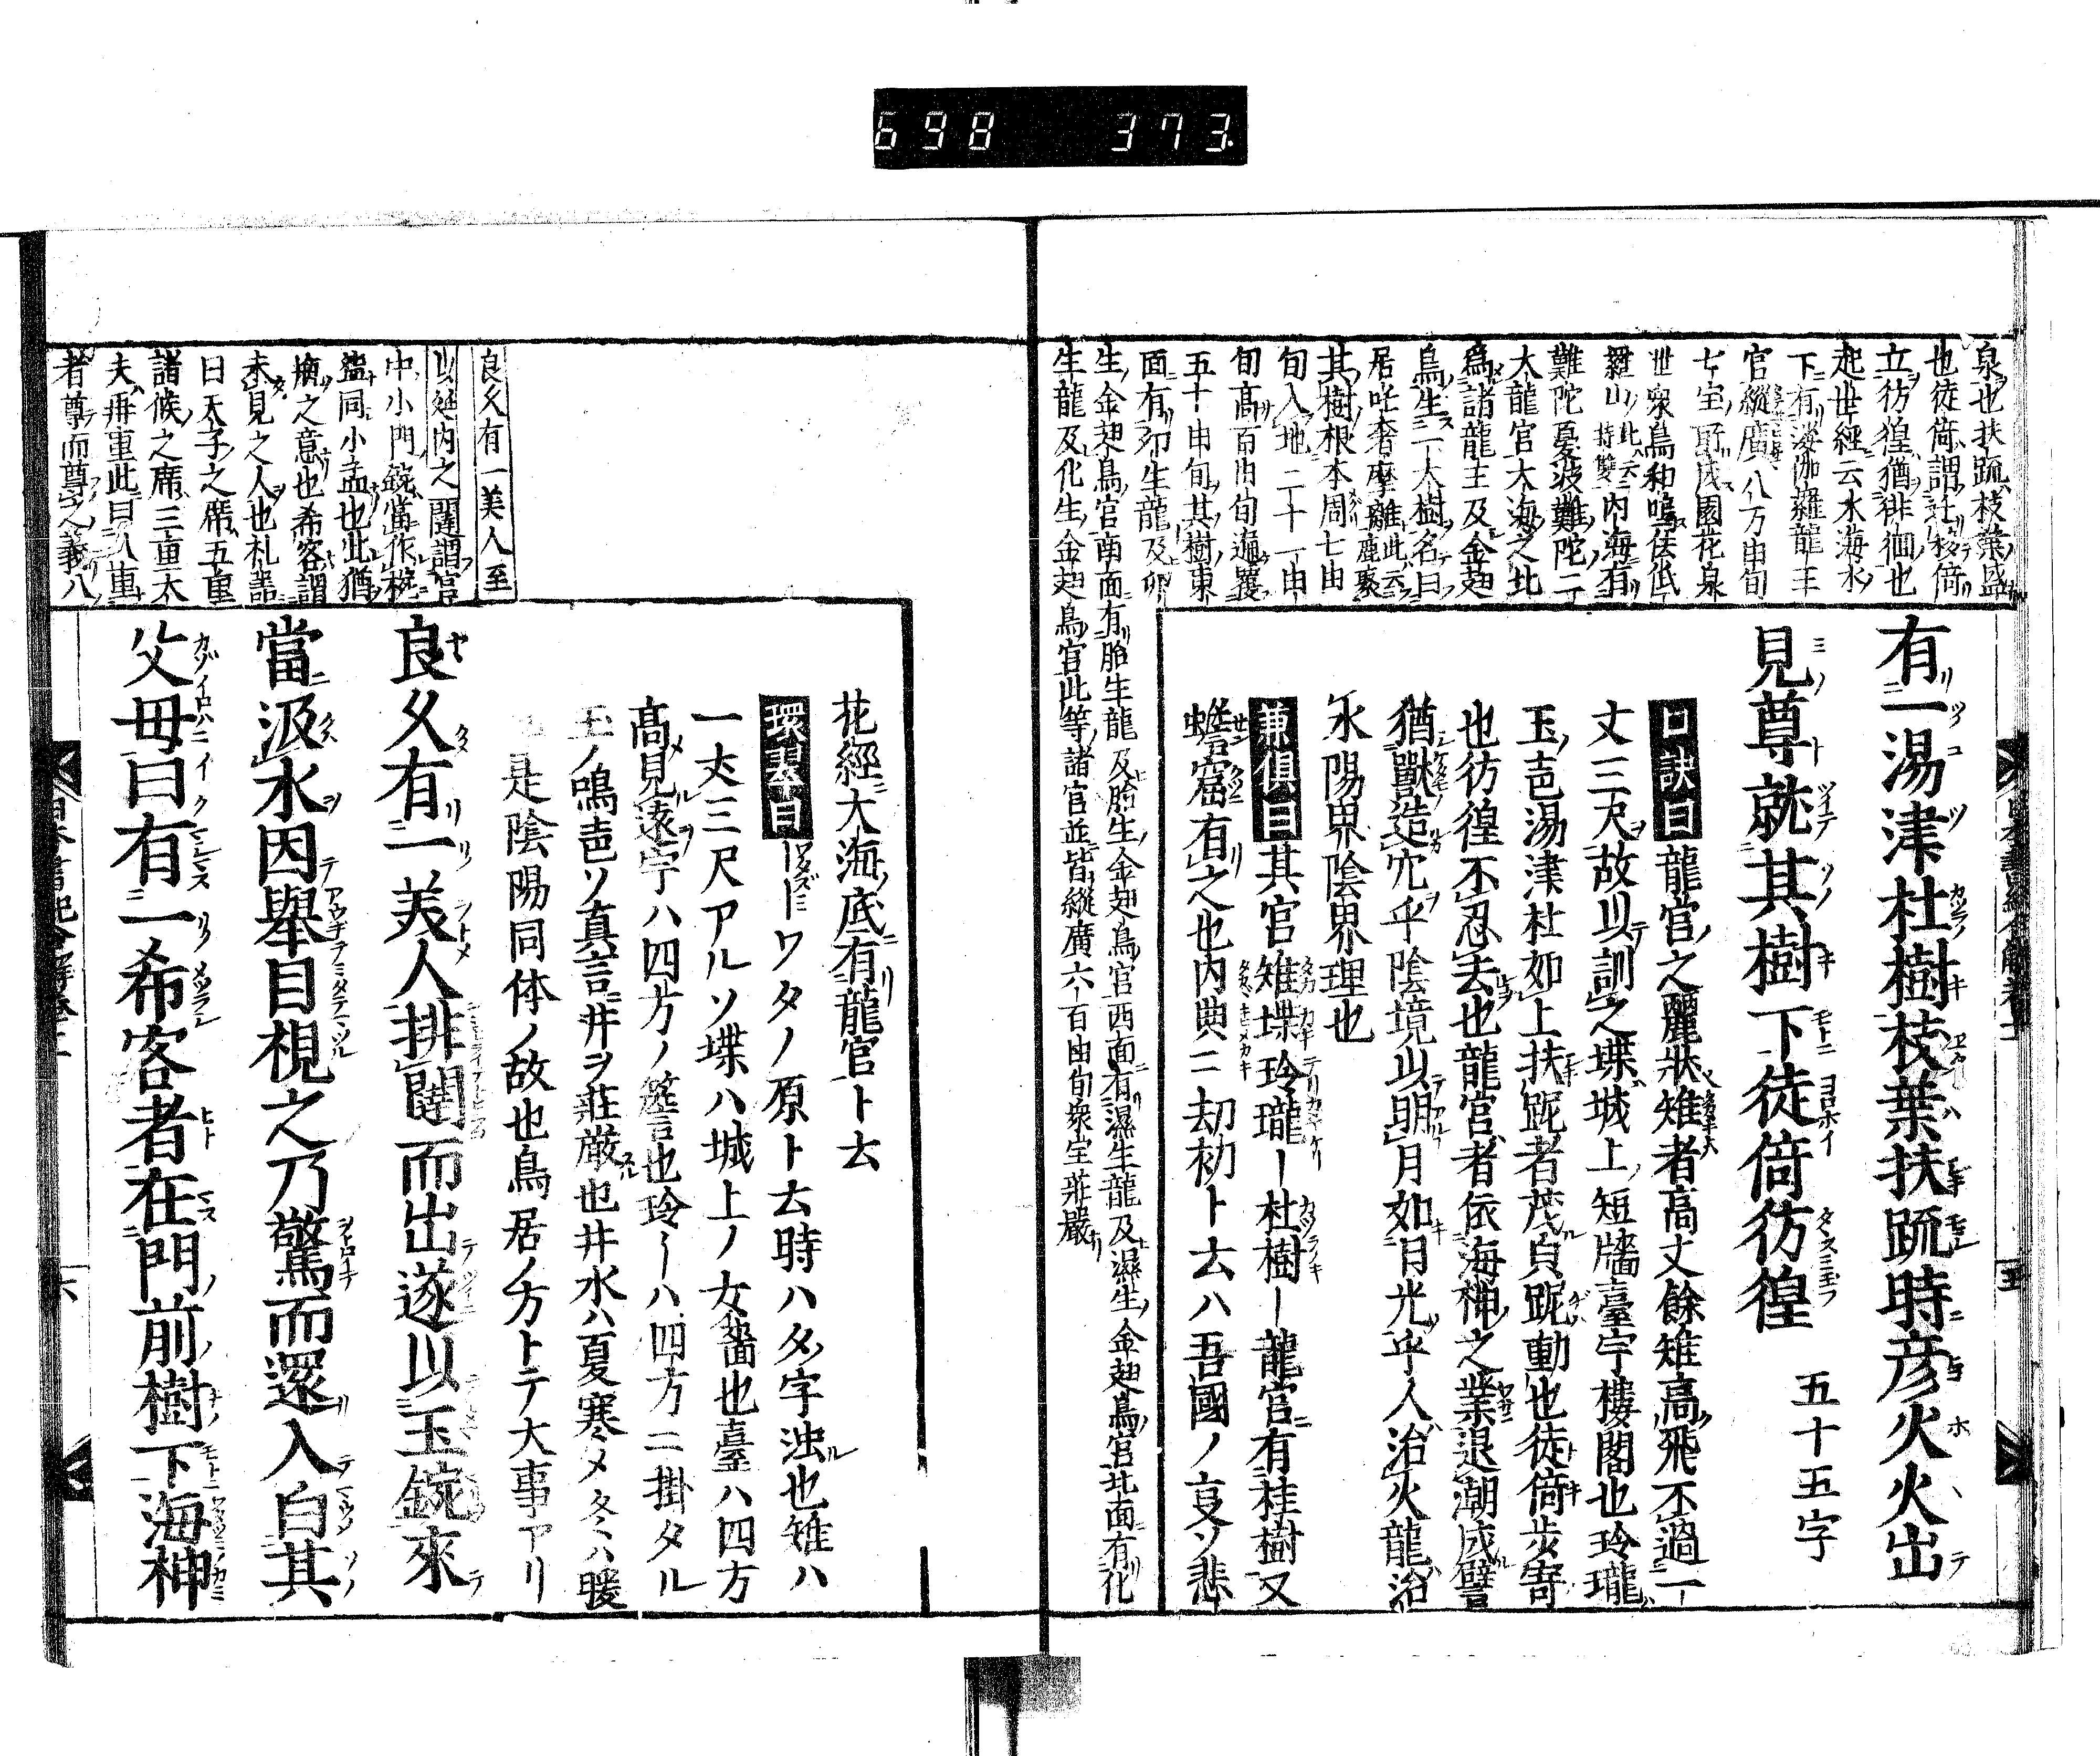 698 373.
泉也扶疏枝葉盛
也徒倚謂
立彷徨猶徘徊也
起世經云水海水
下有娑伽羅龍王
宮縱廣八万由旬
七宝所成園花泉
世衆鳥和鳴
内海有
難陀憂波難陀二
大龍宮大海之北
為諸龍王及金翅
鳥生一大樹名曰
居吒奢摩離此云鹿聚
其樹根本周七由
旬入地二十一由
旬高百由旬遍覆
五十由旬其樹東
面有卵生龍及卵
生金翅鳥宮南面有胎生龍及胎生金翅鳥宮西面有濕生龍及濕生金翅鳥宮北面有化
生龍及化生金翅鳥宮此等諸宮並皆縱廣六百由旬衆宝荘嚴
有一湯津杜樹枝葉扶疏時彦火火出
見尊就其樹下徒倚彷徨 五十五字
口訣曰龍宮之麗状雉者高丈餘雉高飛不過一
丈三尺故以訓之堞城上短牆臺宇樓閣也玲瓏
玉声湯津杜如上扶疏者茂皃疏動也徒倚歩寄
也彷徨不忍去也龍宮者依海神之業退潮成譬
猶獸造穴乎陰境以明月如月光乎人治火龍治
水陽界陰界理也
兼倶曰其宮雉堞玲瓏ー杜樹ー龍宮有桂樹又
蟾窟有之也内典ニ刧初ト云ハ吾國ノ
花經大海底有龍宮ト云
環翠曰ーワタノ原ト云時ハタ字濁也雉ハ
一丈三尺アルソ堞ハ城上ノ女牆也臺ハ四方
高見遠宇ハ四方ノ簷也玲ーハ四方ニ掛タル
玉ノ鳴声ソ真言井ヲ荘厳也井水ハ夏寒メ冬ハ暖
是陰陽同体ノ故也鳥居ノ方トテ大事アリ
良久有一美人至
以延内之闥謂宮
中小門鋺當作椀
盌同小盂也此猶
之意也希客謂
未見之人也礼
曰天子之席五重
諸侯之席三重大
夫再重此曰八重
者尊而尊之義八
良久有一美人排闥而出遂以玉鋺來
當汲水因擧目視之乃驚而還入白其
父母曰有一希客者在門前樹下海神